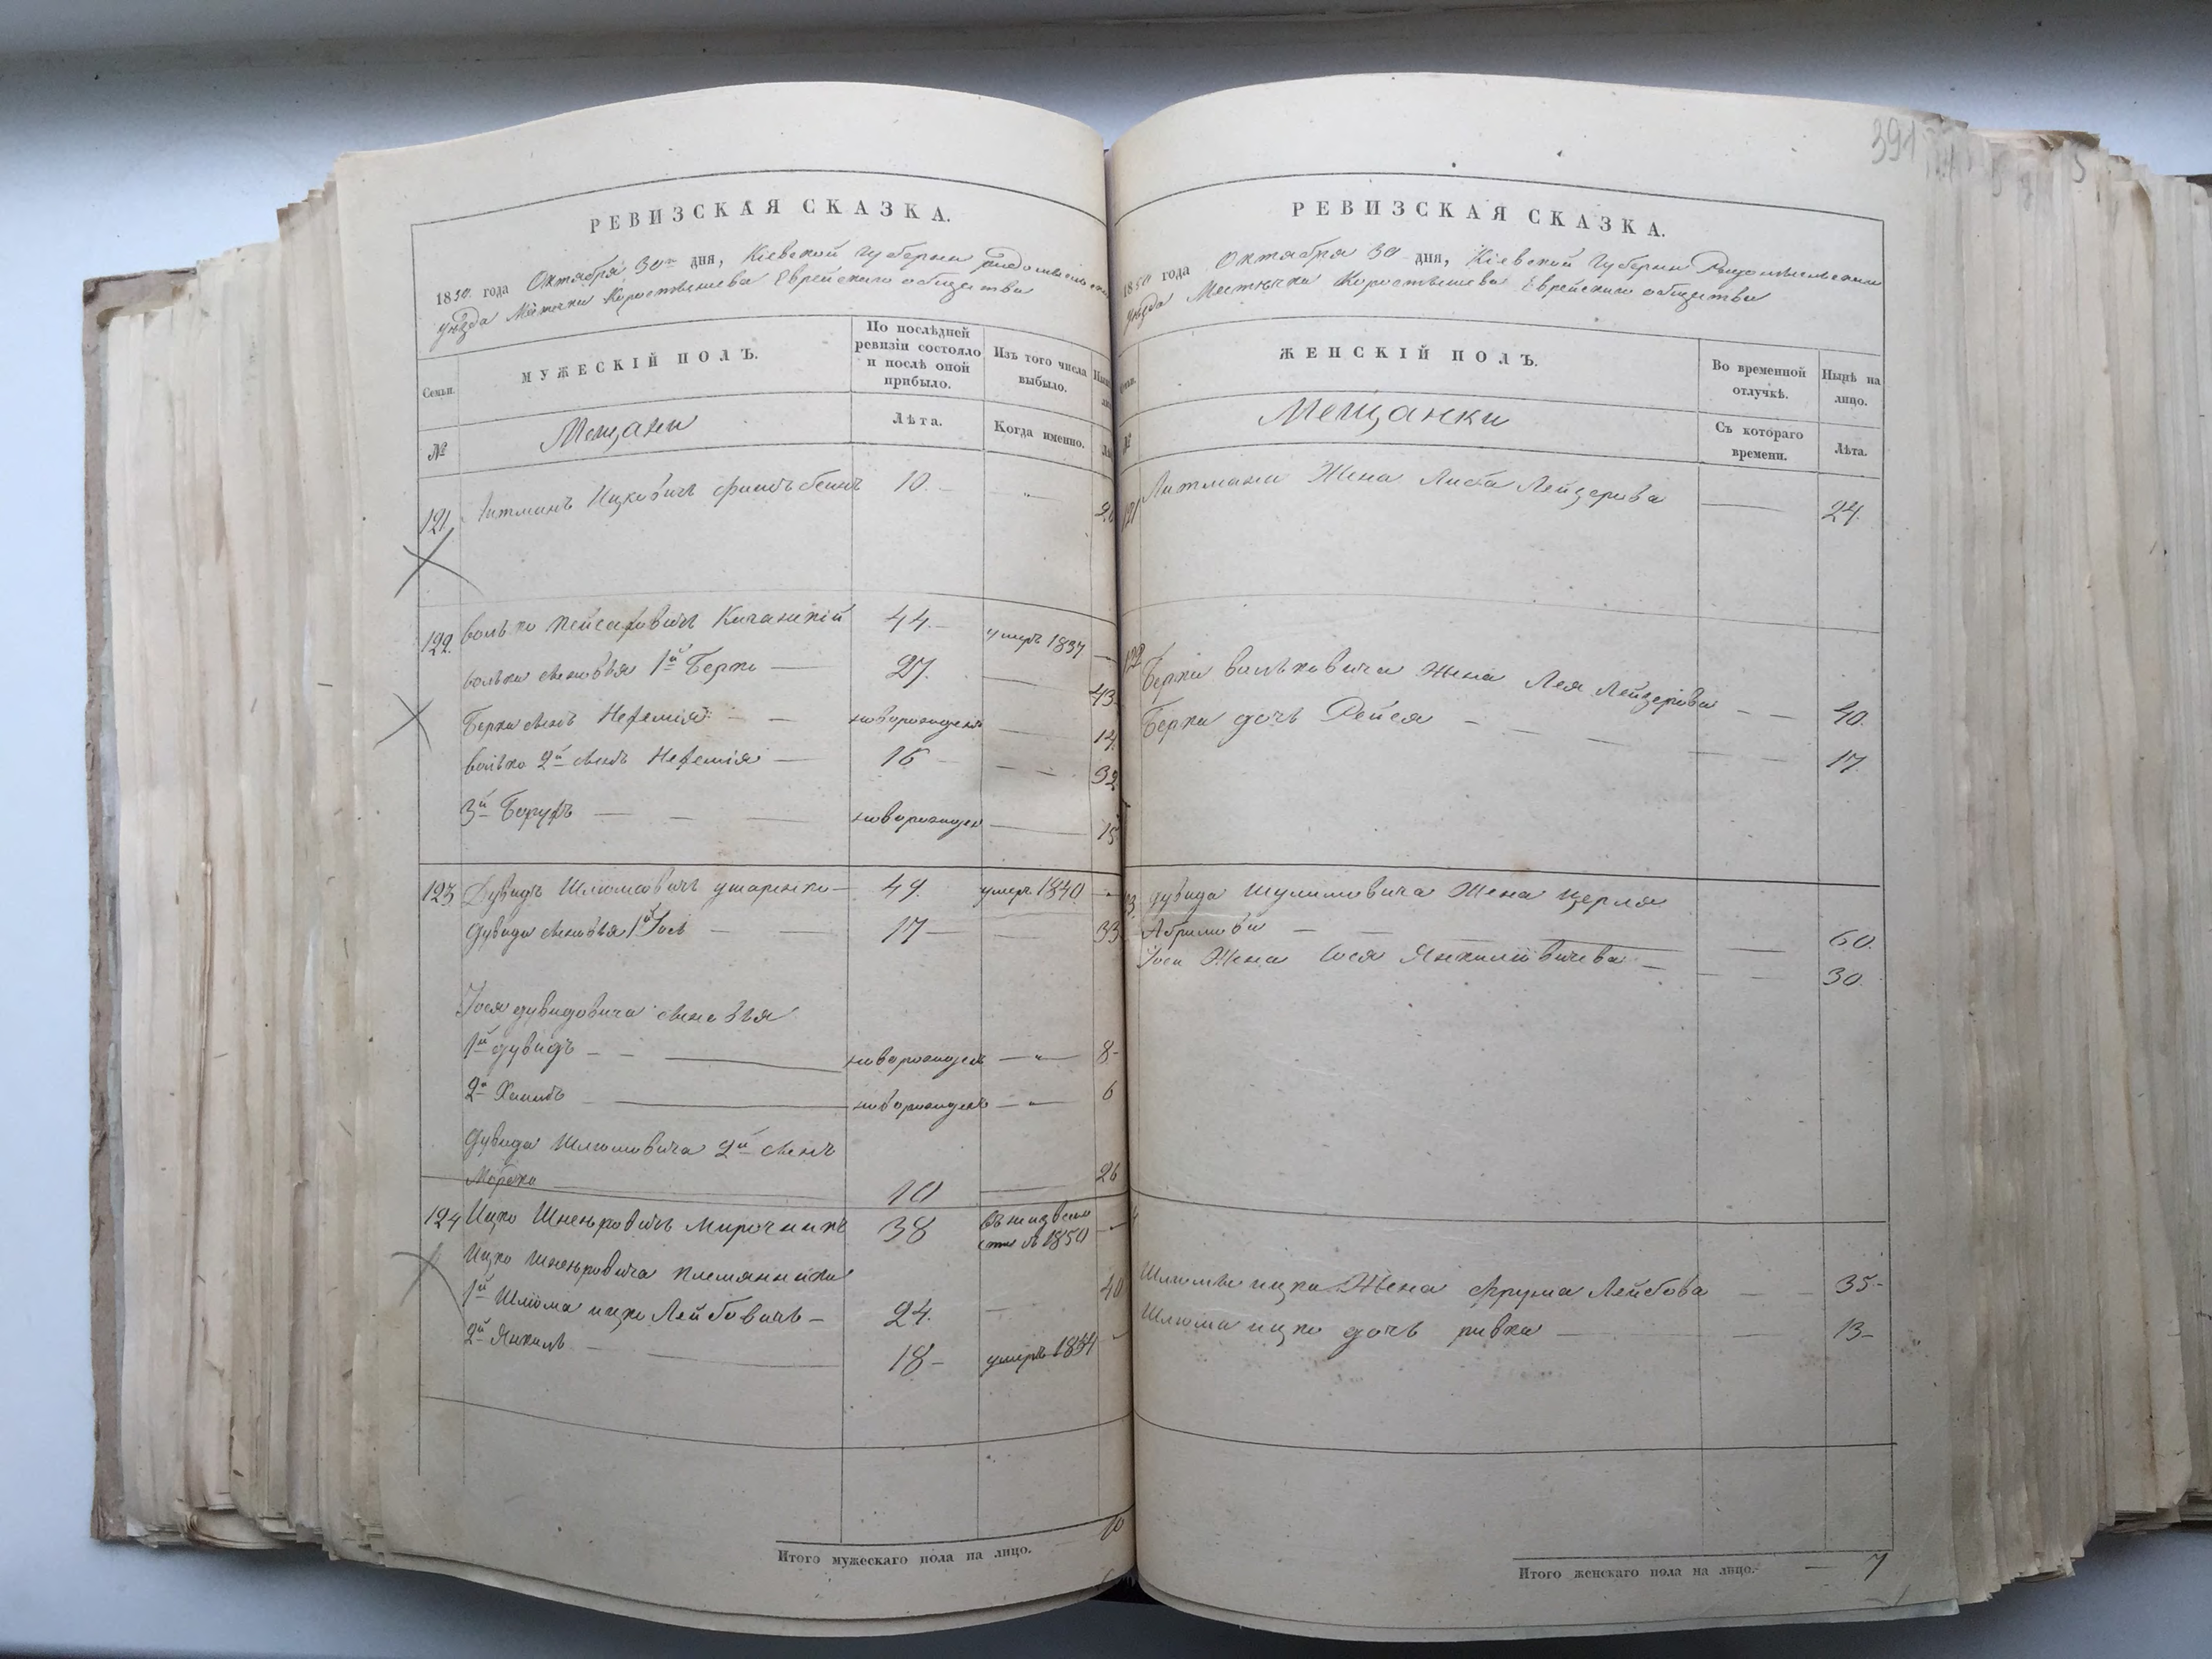 391
РЕВИЗСКАЯ СКАЗКА.
1850 года Октября 30го дня, Кіевской Губерніи Радомысльскаго
уѣзда Мѣстечка Коростышева Еврейскаго общества
Семьи.
МУЖЕСКІЙ ПОЛЪ.
По послѣдней ревизіи состояло и послѣ оной прибыло.
Изъ того числа выбыло.
№
Мещани
Лѣта.
Когда именно.
121. Литманъ Ицковичъ 10. "
122. Волько Пейсаховичъ 44. умеръ 1837
Волька сыновья 1й Берко — 27. — 43
Берка сынъ Нехемія — новорожденъ — 14.
Волько 2й сынъ Нехемія — 16 — 32
3й Борухъ — новорожден — 15
123. Дувидъ Шлиомовичъ 49. умеръ 1840.
Дувида сыновья 1й Іось — 17 — 33
Іося Дувидовича сыновья
1й Дувидъ — новорожден — " — 8
2й — новорожденъ — " — 6
Дувида Шлиомовича 2й сынъ
Мошко 10 — 26
124 Ицко Шнеьровичъ Мирочникъ 38 въ 1850
Ицко Шнеьровича племянники
1й Шлиома ицко Лейбовичъ — 24. — 40
2й Янкель — 18 — умеръ 1834
Итого мужескаго пола на лицо. 10
РЕВИЗСКАЯ СКАЗКА.
1850 года Октября 30 дня, Кіевской Губерніи Радомысльскаго
уѣзда Мѣстечка Коростышева Еврейскаго общества
ЖЕНСКІЙ ПОЛЪ.
Во временной отлучкѣ.
Нынѣ на лицо.
№
Мещанки
Съ котораго времени.
Лѣта.
121 Литмана Жена Либа Лейзерова — 24.
122 Берки Вольковича Жена Лея Лейзерова — 40.
Берки дочь Рейся — 17.
Дувида Шулимовича Жена Церля
Абрамова — 60.
Іося Жена Янкилиовичева — 30.
Шлиомы ицка Жена Фрума Лейбова — 35
Шлиома ицко дочь ривка — 13
Итого женскаго пола на лицо. — 7